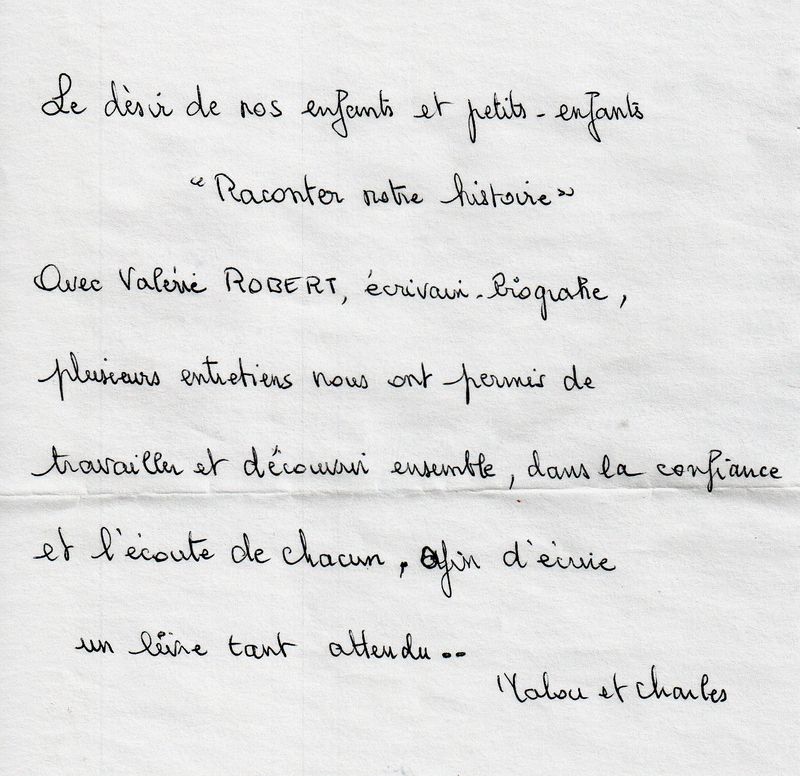 Le désir de nos enfants et petits-enfants
"Raconter notre histoire"
Avec Valérie ROBERT, écrivain-biographe,
plusieurs entretiens nous ont permis de
travailler et découvrir ensemble, dans la confiance
et l'écoute de chacun, afin d'écrire
un livre tant attendu..
Malou et Charles